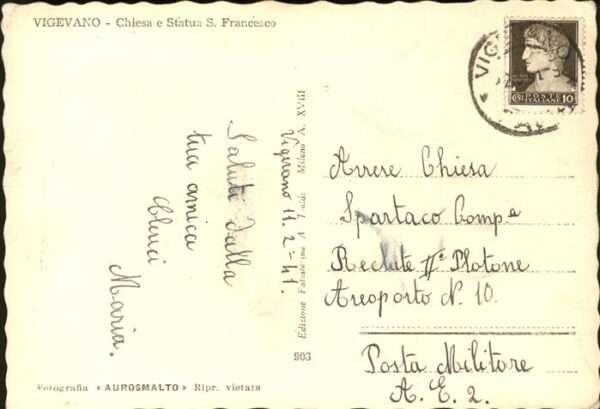 VIGEVANO - Chiesa e Statua S. Francesco
Vigevano 11.2-41.
Saluti dalla
tua amica
Clenci
Maria.
Milano A. XVIII
Edizione
903
VIG
POSTE
ITALIANE
10
Avrere Chiesa
Spartaco Compª
Reclute IIº Plotone
Areoporto N. 10
Posta Militore
A. E 2.
Fotografia « AUROSMALTO » Ripr. vietata